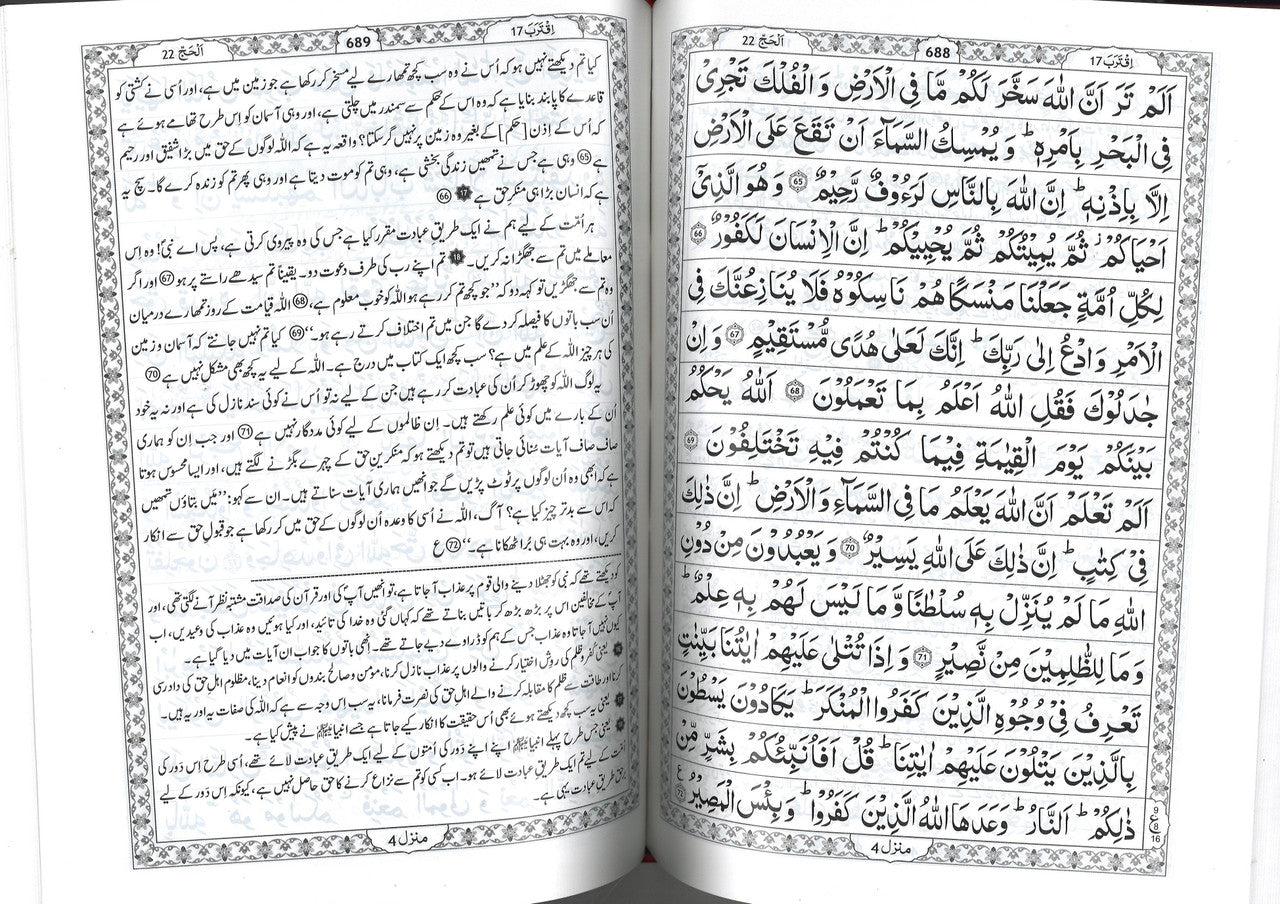 اِقْتَرَبَ 17
688
اَلْحَجّ 22
اَلَمْ تَرَ اَنَّ اللّٰهَ سَخَّرَ لَكُمْ مَّا فِی الْاَرْضِ وَ الْفُلْكَ تَجْرِیْ
فِی الْبَحْرِ بِاَمْرِهٖ ؕ وَ یُمْسِكُ السَّمَآءَ اَنْ تَقَعَ عَلَی الْاَرْضِ
اِلَّا بِاِذْنِهٖ ؕ اِنَّ اللّٰهَ بِالنَّاسِ لَرَءُوْفٌ رَّحِیْمٌ 65 وَ هُوَ الَّذِیْۤ
اَحْیَاكُمْ ؗ ثُمَّ یُمِیْتُكُمْ ثُمَّ یُحْیِیْكُمْ ؕ اِنَّ الْاِنْسَانَ لَكَفُوْرٌ 66
لِكُلِّ اُمَّةٍ جَعَلْنَا مَنْسَكًا هُمْ نَاسِكُوْهُ فَلَا یُنَازِعُنَّكَ فِی
الْاَمْرِ وَ ادْعُ اِلٰی رَبِّكَ ؕ اِنَّكَ لَعَلٰی هُدًی مُّسْتَقِیْمٍ 67 وَ اِنْ
جٰدَلُوْكَ فَقُلِ اللّٰهُ اَعْلَمُ بِمَا تَعْمَلُوْنَ 68 اَللّٰهُ یَحْكُمُ
بَیْنَكُمْ یَوْمَ الْقِیٰمَةِ فِیْمَا كُنْتُمْ فِیْهِ تَخْتَلِفُوْنَ 69
اَلَمْ تَعْلَمْ اَنَّ اللّٰهَ یَعْلَمُ مَا فِی السَّمَآءِ وَ الْاَرْضِ ؕ اِنَّ ذٰلِكَ
فِیْ كِتٰبٍ ؕ اِنَّ ذٰلِكَ عَلَی اللّٰهِ یَسِیْرٌ 70 وَ یَعْبُدُوْنَ مِنْ دُوْنِ
اللّٰهِ مَا لَمْ یُنَزِّلْ بِهٖ سُلْطٰنًا وَّ مَا لَیْسَ لَهُمْ بِهٖ عِلْمٌ ؕ
وَ مَا لِلظّٰلِمِیْنَ مِنْ نَّصِیْرٍ 71 وَ اِذَا تُتْلٰی عَلَیْهِمْ اٰیٰتُنَا بَیِّنٰتٍ
تَعْرِفُ فِیْ وُجُوْهِ الَّذِیْنَ كَفَرُوا الْمُنْكَرَ ؕ یَكَادُوْنَ یَسْطُوْنَ
بِالَّذِیْنَ یَتْلُوْنَ عَلَیْهِمْ اٰیٰتِنَا ؕ قُلْ اَفَاُنَبِّئُكُمْ بِشَرٍّ مِّنْ
ذٰلِكُمْ ؕ اَلنَّارُ ؕ وَعَدَهَا اللّٰهُ الَّذِیْنَ كَفَرُوْا ؕ وَ بِئْسَ الْمَصِیْرُ 72 ع
9 ع 8 16
منزل 4
اِقْتَرَبَ 17
689
اَلْحَجّ 22
کیا تم دیکھتے نہیں ہو کہ اُس نے وہ سب کچھ تمھارے لیے مسخر کر رکھا ہے جو زمین میں ہے، اور اُسی نے کشتی کو
قاعدے کا پابند بنایا ہے کہ وہ اس کے حکم سے سمندر میں چلتی ہے، اور وہی آسمان کو اِس طرح تھامے ہوئے ہے
کہ اُس کے اِذن [حکم] کے بغیر وہ زمین پر نہیں گر سکتا؟ واقعہ یہ ہے کہ اللہ لوگوں کے حق میں بڑا شفیق اور رحیم
ہے 65 وہی ہے جس نے تمھیں زندگی بخشی ہے، وہی تم کو موت دیتا ہے اور وہی پھر تم کو زندہ کرے گا۔ سچ یہ
ہے کہ انسان بڑا ہی منکرِ حق ہے 17 66
ہر اُمّت کے لیے ہم نے ایک طریقِ عبادت مقرر کیا ہے جس کی وہ پیروی کرتی ہے، پس اے نبیؐ! وہ اِس
معاملے میں تم سے جھگڑا نہ کریں۔ 18 تم اپنے رب کی طرف دعوت دو۔ یقیناً تم سیدھے راستے پر ہو 67 اور اگر
وہ تم سے جھگڑیں تو کہہ دو کہ ”جو کچھ تم کر رہے ہو اللہ کو خوب معلوم ہے، 68 اللہ قیامت کے روز تمھارے درمیان
اُن سب باتوں کا فیصلہ کر دے گا جن میں تم اختلاف کرتے رہے ہو۔“ 69 کیا تم نہیں جانتے کہ آسمان و زمین
کی ہر چیز اللہ کے علم میں ہے؟ سب کچھ ایک کتاب میں درج ہے۔ اللہ کے لیے یہ کچھ بھی مشکل نہیں ہے 70
یہ لوگ اللہ کو چھوڑ کر اُن کی عبادت کر رہے ہیں جن کے لیے نہ تو اُس نے کوئی سند نازل کی ہے اور نہ یہ خود
اُن کے بارے میں کوئی علم رکھتے ہیں۔ اِن ظالموں کے لیے کوئی مددگار نہیں ہے 71 اور جب اِن کو ہماری
صاف صاف آیات سُنائی جاتی ہیں تو تم دیکھتے ہو کہ منکرینِ حق کے چہرے بگڑنے لگتے ہیں، اور ایسا محسوس ہوتا
ہے کہ ابھی وہ اُن لوگوں پر ٹوٹ پڑیں گے جو اُنھیں ہماری آیات سناتے ہیں۔ ان سے کہو: ”مَیں بتاؤں تمھیں
کہ اس سے بدتر چیز کیا ہے؟ آگ، اللہ نے اُسی کا وعدہ اُن لوگوں کے حق میں کر رکھا ہے جو قبولِ حق سے انکار
کریں، اور وہ بہت ہی بُرا ٹھکانا ہے۔“ 72 ع
کو دیکھتے تھے کہ نبی کو جھٹلا دینے والی قوم پر عذاب آ جاتا ہے، تو اُنھیں آپؐ کی اور قرآن کی صداقت مشتبہ نظر آنے لگتی تھی، اور
آپؐ کے مخالفین اس پر بڑھ بڑھ کر باتیں بناتے تھے کہ کہاں گئی وہ خدا کی تائید، اور کیا ہوئیں وہ عذاب کی وعیدیں، اب
کیوں نہیں آ جاتا وہ عذاب جس کے ہم کو ڈراوے دیے جاتے تھے۔ اِنھی باتوں کا جواب ان آیات میں دیا گیا ہے۔
یعنی کفر و ظلم کی روِش اختیار کرنے والوں پر عذاب نازل کرنا، مومن و صالح بندوں کو انعام دینا، مظلوم اہلِ حق کی داد رسی
کرنا اور طاقت سے ظلم کا مقابلہ کرنے والے اہلِ حق کی نصرت فرمانا، یہ سب اِس وجہ سے ہے کہ اللہ کی صفات یہ اور یہ ہیں۔
یعنی یہ سب کچھ دیکھتے ہوئے بھی اُس حقیقت کا انکار کیے جاتا ہے جسے انبیا ﷩ نے پیش کیا ہے۔
یعنی جس طرح پہلے انبیا ﷩ اپنے اپنے دَور کی اُمتوں کے لیے ایک طریقِ عبادت لائے تھے، اُسی طرح اِس دَور کی
اُمّت کے لیے تم ایک طریقِ عبادت لائے ہو۔ اب کسی کو تم سے نزاع کرنے کا حق حاصل نہیں ہے، کیونکہ اس دَور کے لیے
برحق طریقِ عبادت یہی ہے۔
منزل 4